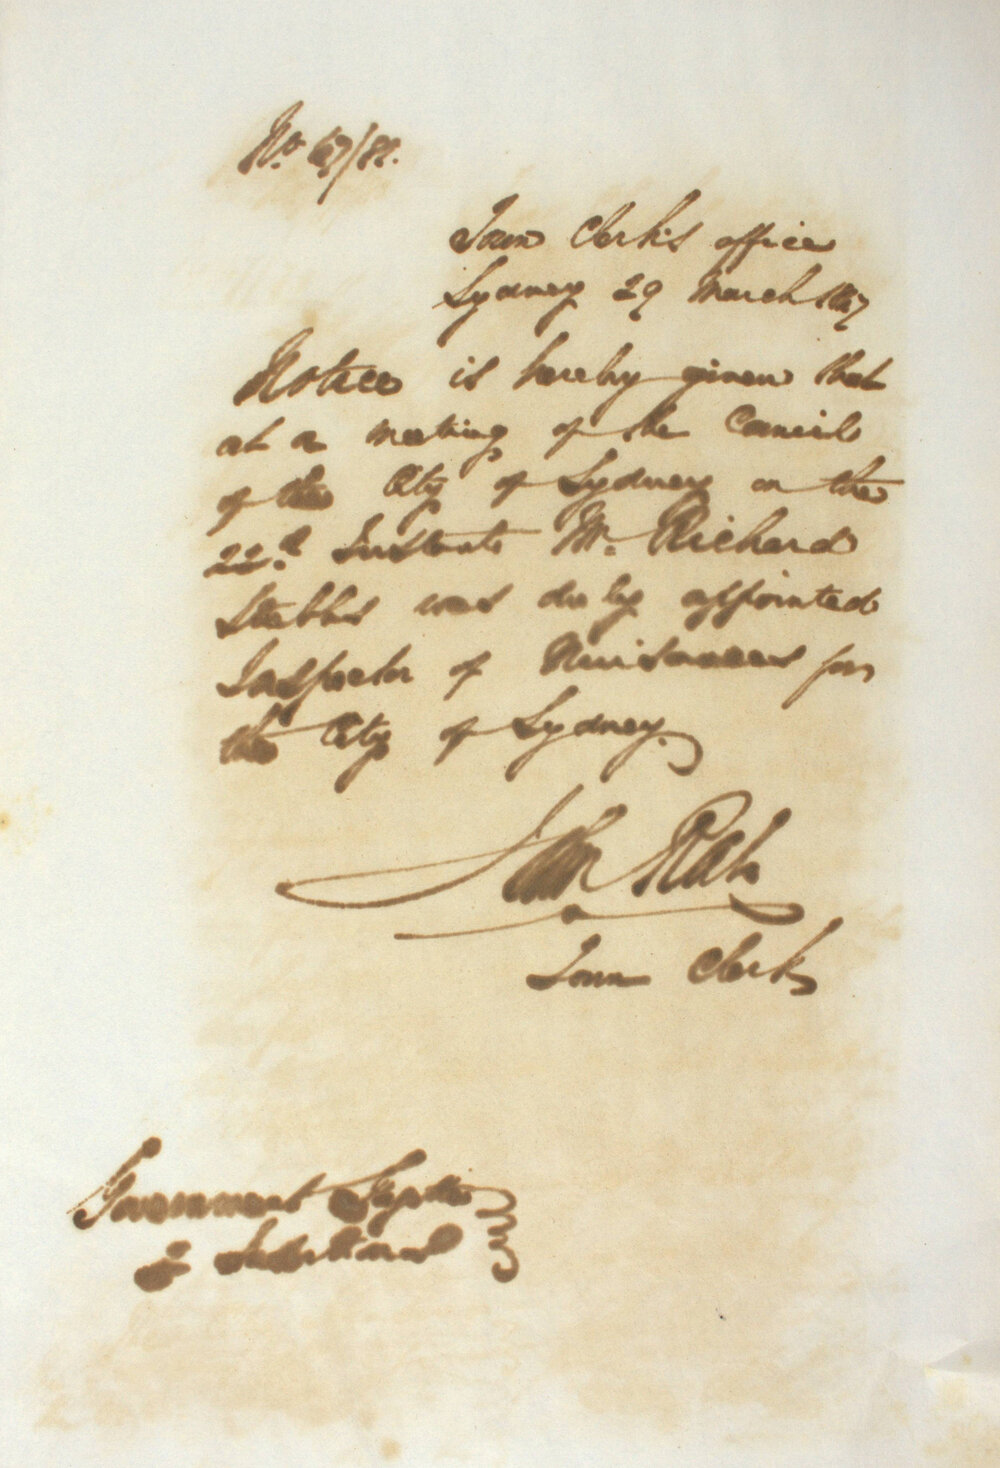 No. 47/82.
Town Clerk's office
Sydney 29 March 1847
Notice is hereby given that
at a meeting of the Council
of the City of Sydney on the
22d. Instant Mr. Richard
Stubbs was duly appointed
Inspector of Nuisances for
the City of Sydney.
John Rae
Town Clerk
Government Gazette
2 Insertions